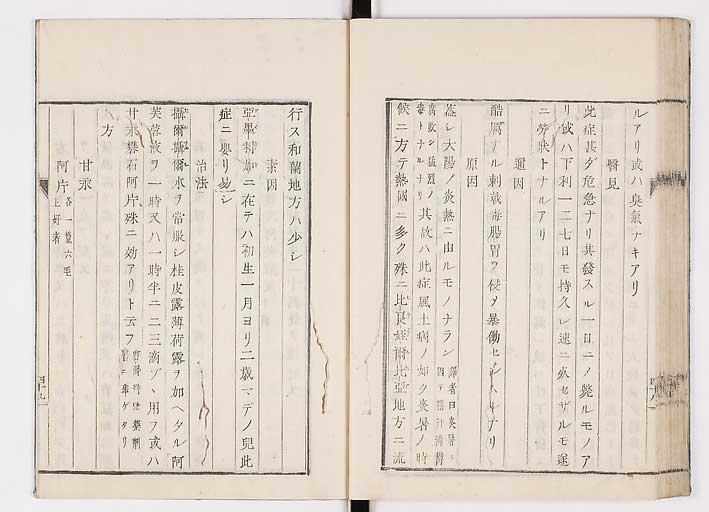 ルアリ或ハ臭氣ナキアリ
醫見
此症甚ダ危急ナリ其發スル一日ニノ斃ルモノア
リ或ハ下利一二七日モ持久シ速ニ盛セザルモ遂
ニ勞瘵トナルアリ
遠因
酷厲ナル刺戟毒腸胃ヲ侵メ暴働セシムルナリ
原因
蓋シ大陽ノ炎熱ニ由ルモノナラン譯者曰炎暑ニ
毒トナルナリ其故ハ此症風土病ノ如ク炎暑ノ時
候ニ方テ熱國ニ多ク殊ニ比良垤爾比亞地方ニ流
行ス和蘭地方ハ少シ
素因
亞墨利加ニ在テハ初生一月ヨリ二歳マデノ兒此
症ニ嬰リ易シ
治法
攝爾攝爾水ヲ常服シ桂皮露薄荷露ヲ加ヘタル阿
芙蓉液ヲ一時又ハ一時半ニ二三滴ヅヽ用フ或ハ
甘汞礬石阿片殊ニ効アリト云フ
方
甘汞
阿片 各一釐六毛
上好者
四十八
四十九